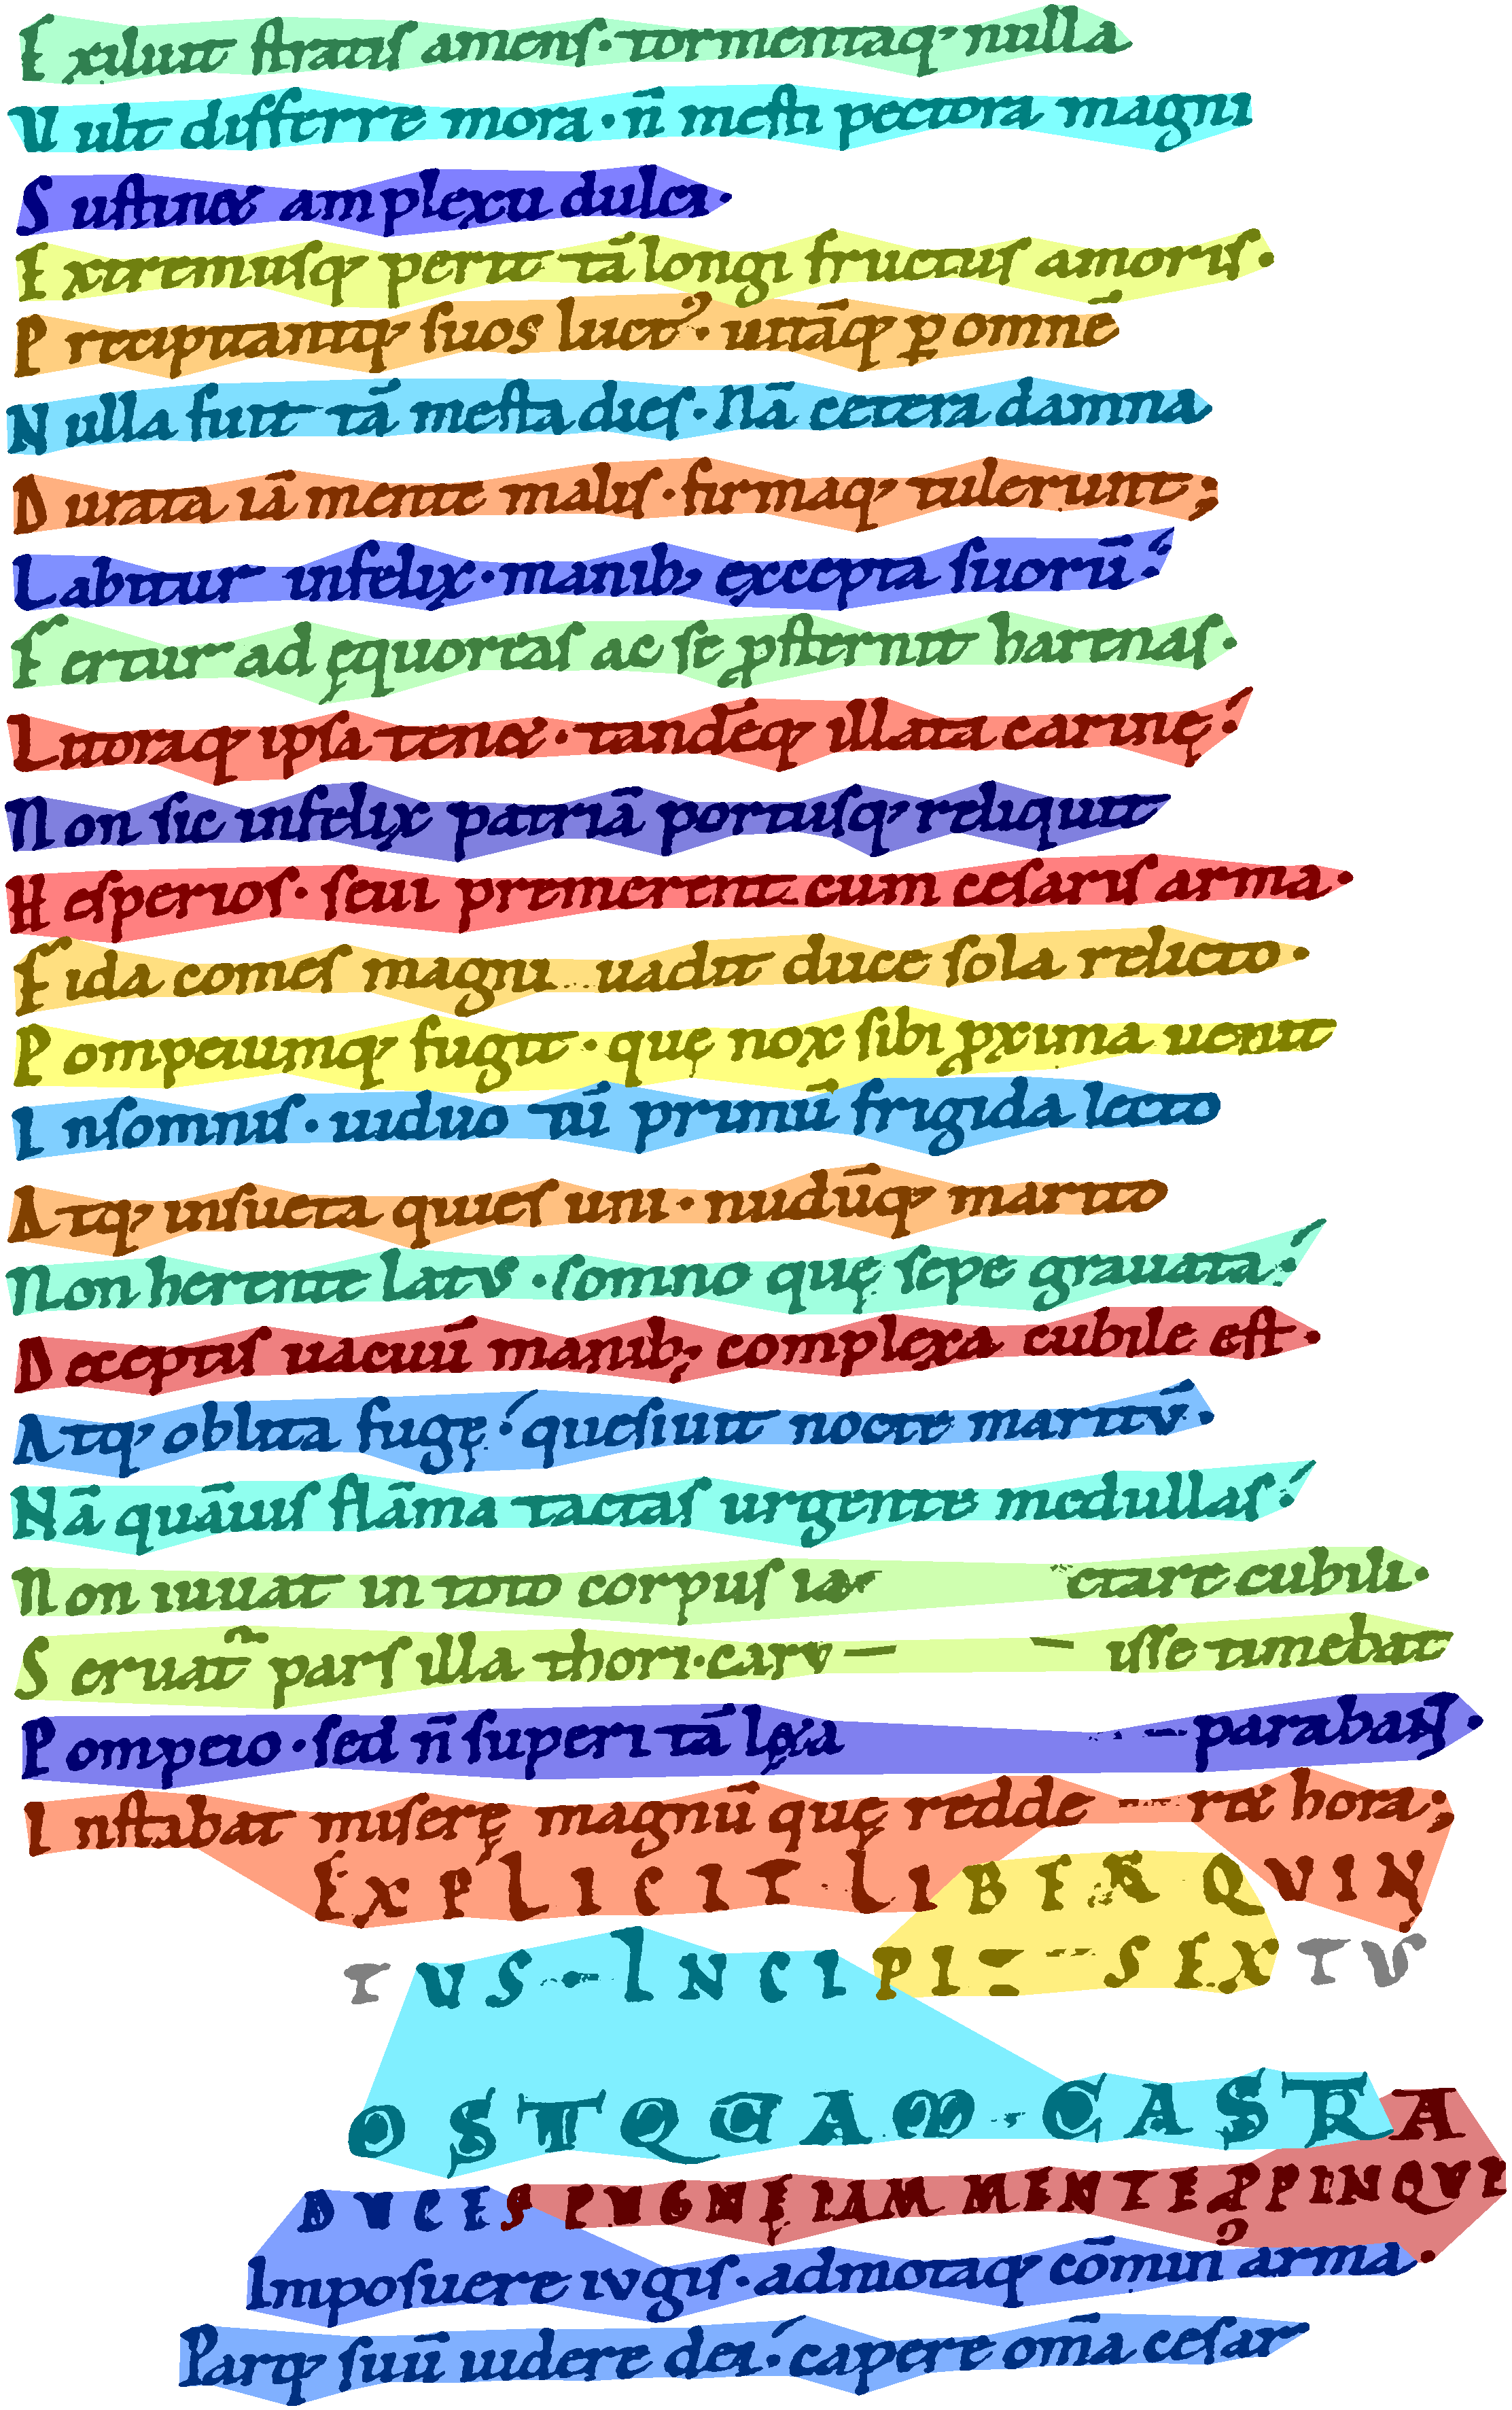 Exiluit stratis amens · tormentaq; nulla
Vult differre mora · n̄ mesti pectora magni
Sustin& amplexu dulci ·
Extremusq; perit tā longi fructus amoris ·
Precipitantq; suos luct᾿ · uitāq; ꝑ omnē
Nulla fuit tā mesta dies · Nā cetera damna
Durata iā mente malis · firmaq; tulerunt;
Labitur infelix · manib; excepta suorū:
Fertur ad ęquoreas ac se ꝓsternit harenas ·
Litoraq; ipsa ten& · tandēq; illata carinę:
Non sic infelix patriā portusq; reliquit
Hesperios · seui premerent cum cesaris arma ·
Fida comes magni uadit duce sola relicto ·
Pompeiumq; fugit · quę nox sibi ꝓxima uenit
Insomnis · uiduo tū primū frigida lecto
Atq; insueta quies uni · nudūq; marito
Non herente latus · somno quę sepe grauata:
Deceptis uacuū manib; complexa cubile est ·
Atq; oblita fugę: quesiuit nocte maritū ·
Nā quāuis flāma tactas urgente medullas:
Non iuuat in toto corpus ia ctare cubili ·
Seruat̄ pars illa thori · car isse timebat
Pompeio · sed n̄ superi tā lęta parabant ·
Instabat miserę magnū quę redde r& hora;
EXPLICIT LIBER QVIN
TVS INCIPIT SEXTV
OSTQUAM CASTRA
DVCES PVGNĘ IAM MENTE ꝓPINQVI
Imposuere iugis · admotaq; cōmin᾿ arma ·
Parq; suū uidere dei: capere om̄a cesar